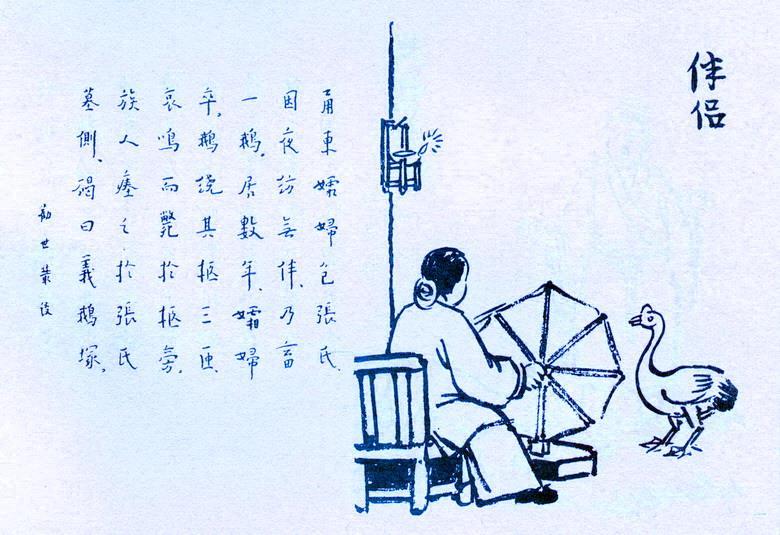 伴侶
甬東孀婦包張氏
因夜紡無伴，乃畜
一鵝。居數年，孀婦
卒，鵝繞其柩三匝，
哀鳴而斃於柩旁。
族人瘞之於張氏
墓側，碣曰義鵝塚。
勸世叢談